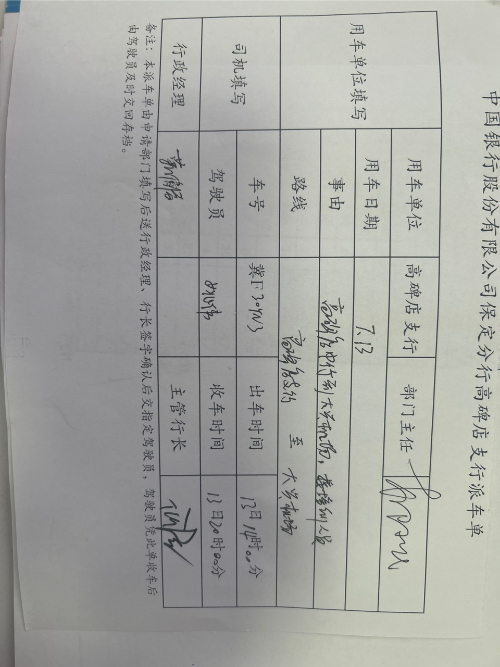 中国银行股份有限公司保定分行高碑店支行派车单
用车单位填写
用车单位 高碑店支行 部门主任
用车日期 7.13
事由 高碑店中行到大兴机场，接培训人员
路线 高碑店支行 至 大兴机场
司机填写
车号 冀F30YN3 出车时间 13日14时00分
驾驶员 收车时间 13日20时00分
行政经理 主管行长
备注：本派车单由申请部门填写后送行政经理、行长签字确认后交指定驾驶员，驾驶员凭此单收车后
由驾驶员及时交回存档。